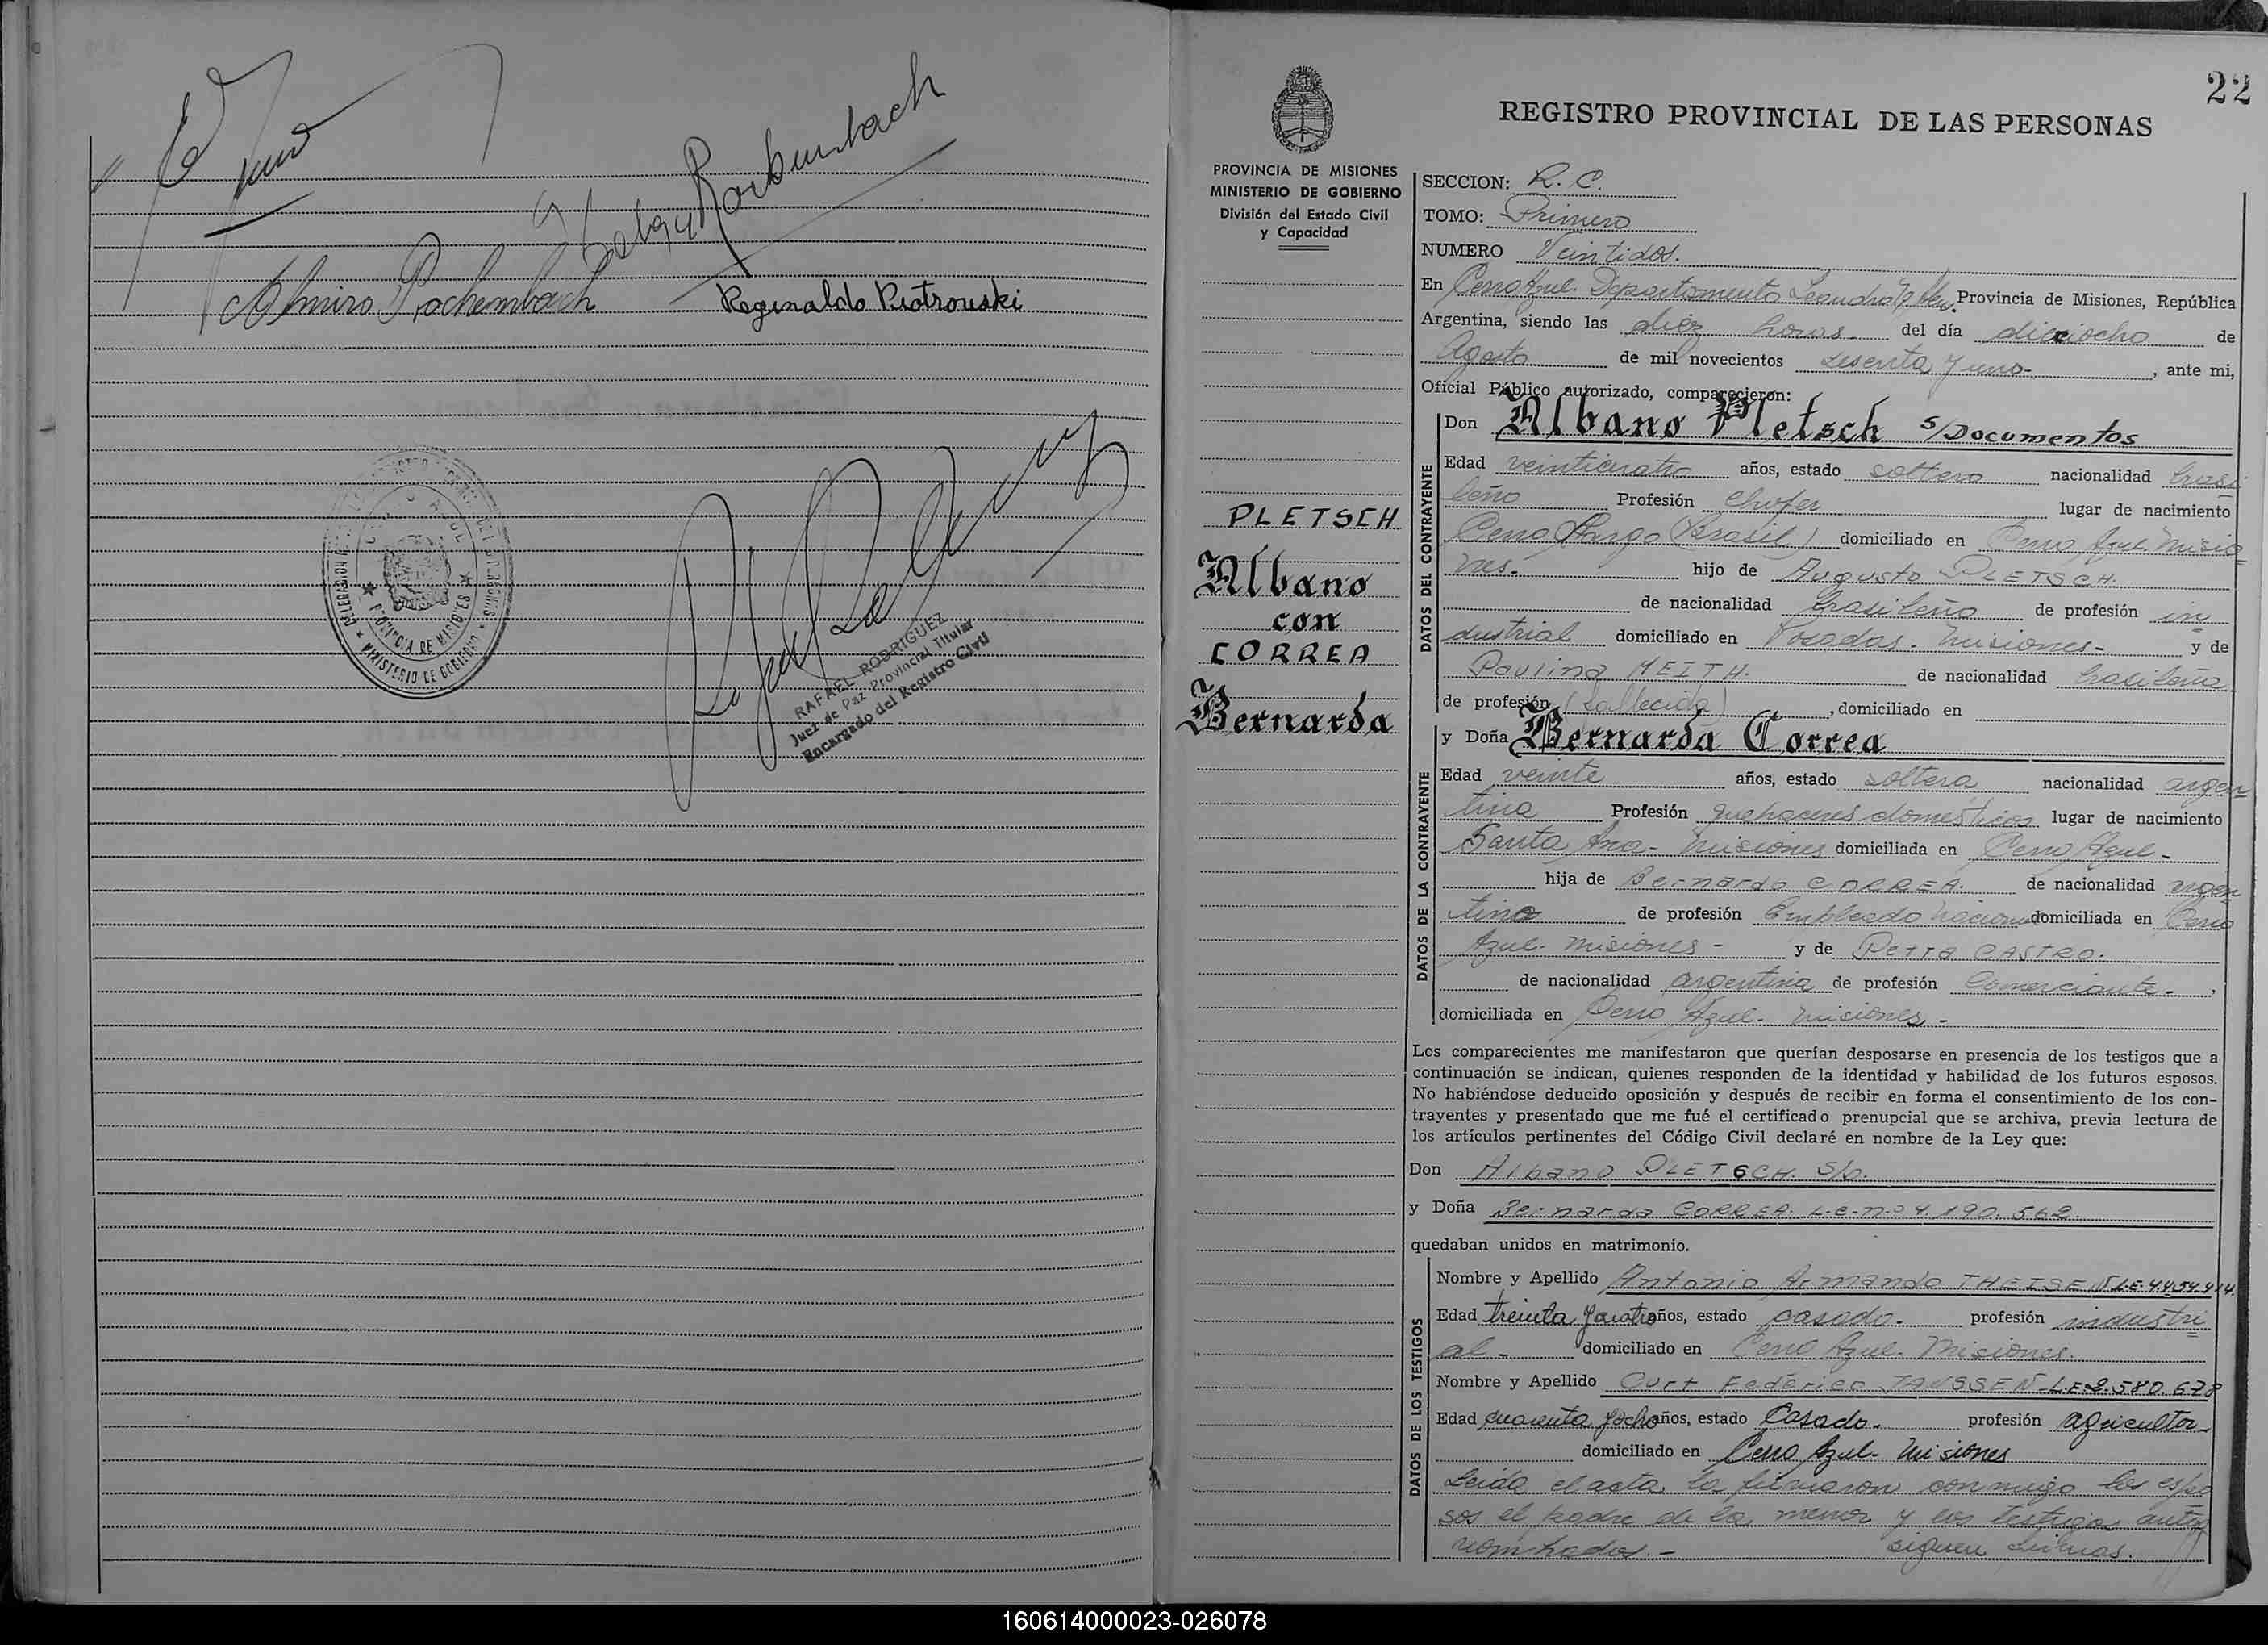 Almiro Rochembach
Reginaldo Piotrouski
RAFAEL RODRIGUEZ
Juez de Paz Provincial Titular
Encargado del Registro Civil
PROVINCIA DE MISIONES
MINISTERIO DE GOBIERNO
22
REGISTRO PROVINCIAL DE LAS PERSONAS
PROVINCIA DE MISIONES
MINISTERIO DE GOBIERNO
División del Estado Civil
y Capacidad
PLETSCH
Albano
con
CORREA
Bernarda
SECCION: R. C.
TOMO: Primero
NUMERO Veintidos.
En Cerro Azul. Departamento Leandro N. Alem. Provincia de Misiones, República
Argentina, siendo las diez horas del día dieciocho de
Agosto de mil novecientos sesenta y uno- , ante mi,
Oficial Público autorizado, comparecieron:
DATOS DEL CONTRAYENTE
Don Albano Pletsch s/Documentos
Edad veinticuatro años, estado soltero nacionalidad brasi
leño Profesión Chofer lugar de nacimiento
Cerro Largo (Brasil) domiciliado en Cerro Azul. Misio
nes. hijo de Augusto PLETSCH.
de nacionalidad brasileño de profesión in
dustrial domiciliado en Posadas. Misiones- y de
Paulina MEITH. de nacionalidad brasileña
de profesión (fallecida) , domiciliado en
DATOS DE LA CONTRAYENTE
y Doña Bernarda Correa
Edad veinte años, estado soltera nacionalidad argen
tina Profesión quehaceres domesticos lugar de nacimiento
Santa Ana- Misiones domiciliada en Cerro Azul-
hija de Bernardo CORREA. de nacionalidad argen
tino de profesión Empleado Nacional domiciliada en Cerro
Azul. Misiones - y de Petra CASTRO.
de nacionalidad argentina de profesión Comerciante- ,
domiciliada en Cerro Azul. Misiones -
Los comparecientes me manifestaron que querían desposarse en presencia de los testigos que a
continuación se indican, quienes responden de la identidad y habilidad de los futuros esposos.
No habiéndose deducido oposición y después de recibir en forma el consentimiento de los con-
trayentes y presentado que me fué el certificado prenupcial que se archiva, previa lectura de
los artículos pertinentes del Código Civil declaré en nombre de la Ley que:
Don Albano PLETSCH. S/D.
y Doña Bernarda CORREA. L.C.n.º 4.190.562.
quedaban unidos en matrimonio.
DATOS DE LOS TESTIGOS
Nombre y Apellido Antonio Armando THEISEN L.E. 4.454.914
Edad treinta y cuatro años, estado casado. profesión industri
al- domiciliado en Cerro Azul. Misiones.
Nombre y Apellido Curt Federico JANSSEN L.E 2.580.678
Edad cuarenta y ocho años, estado Casado. profesión agricultor
domiciliado en Cerro Azul- Misiones
Leída el acta la firmaron conmigo los espo
sos el padre de la menor y los testigos antes
nombrados.- siguen firmas.
160614000023-026078